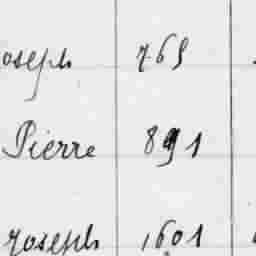 Joseph 765
Pierre 891
Joseph 1601